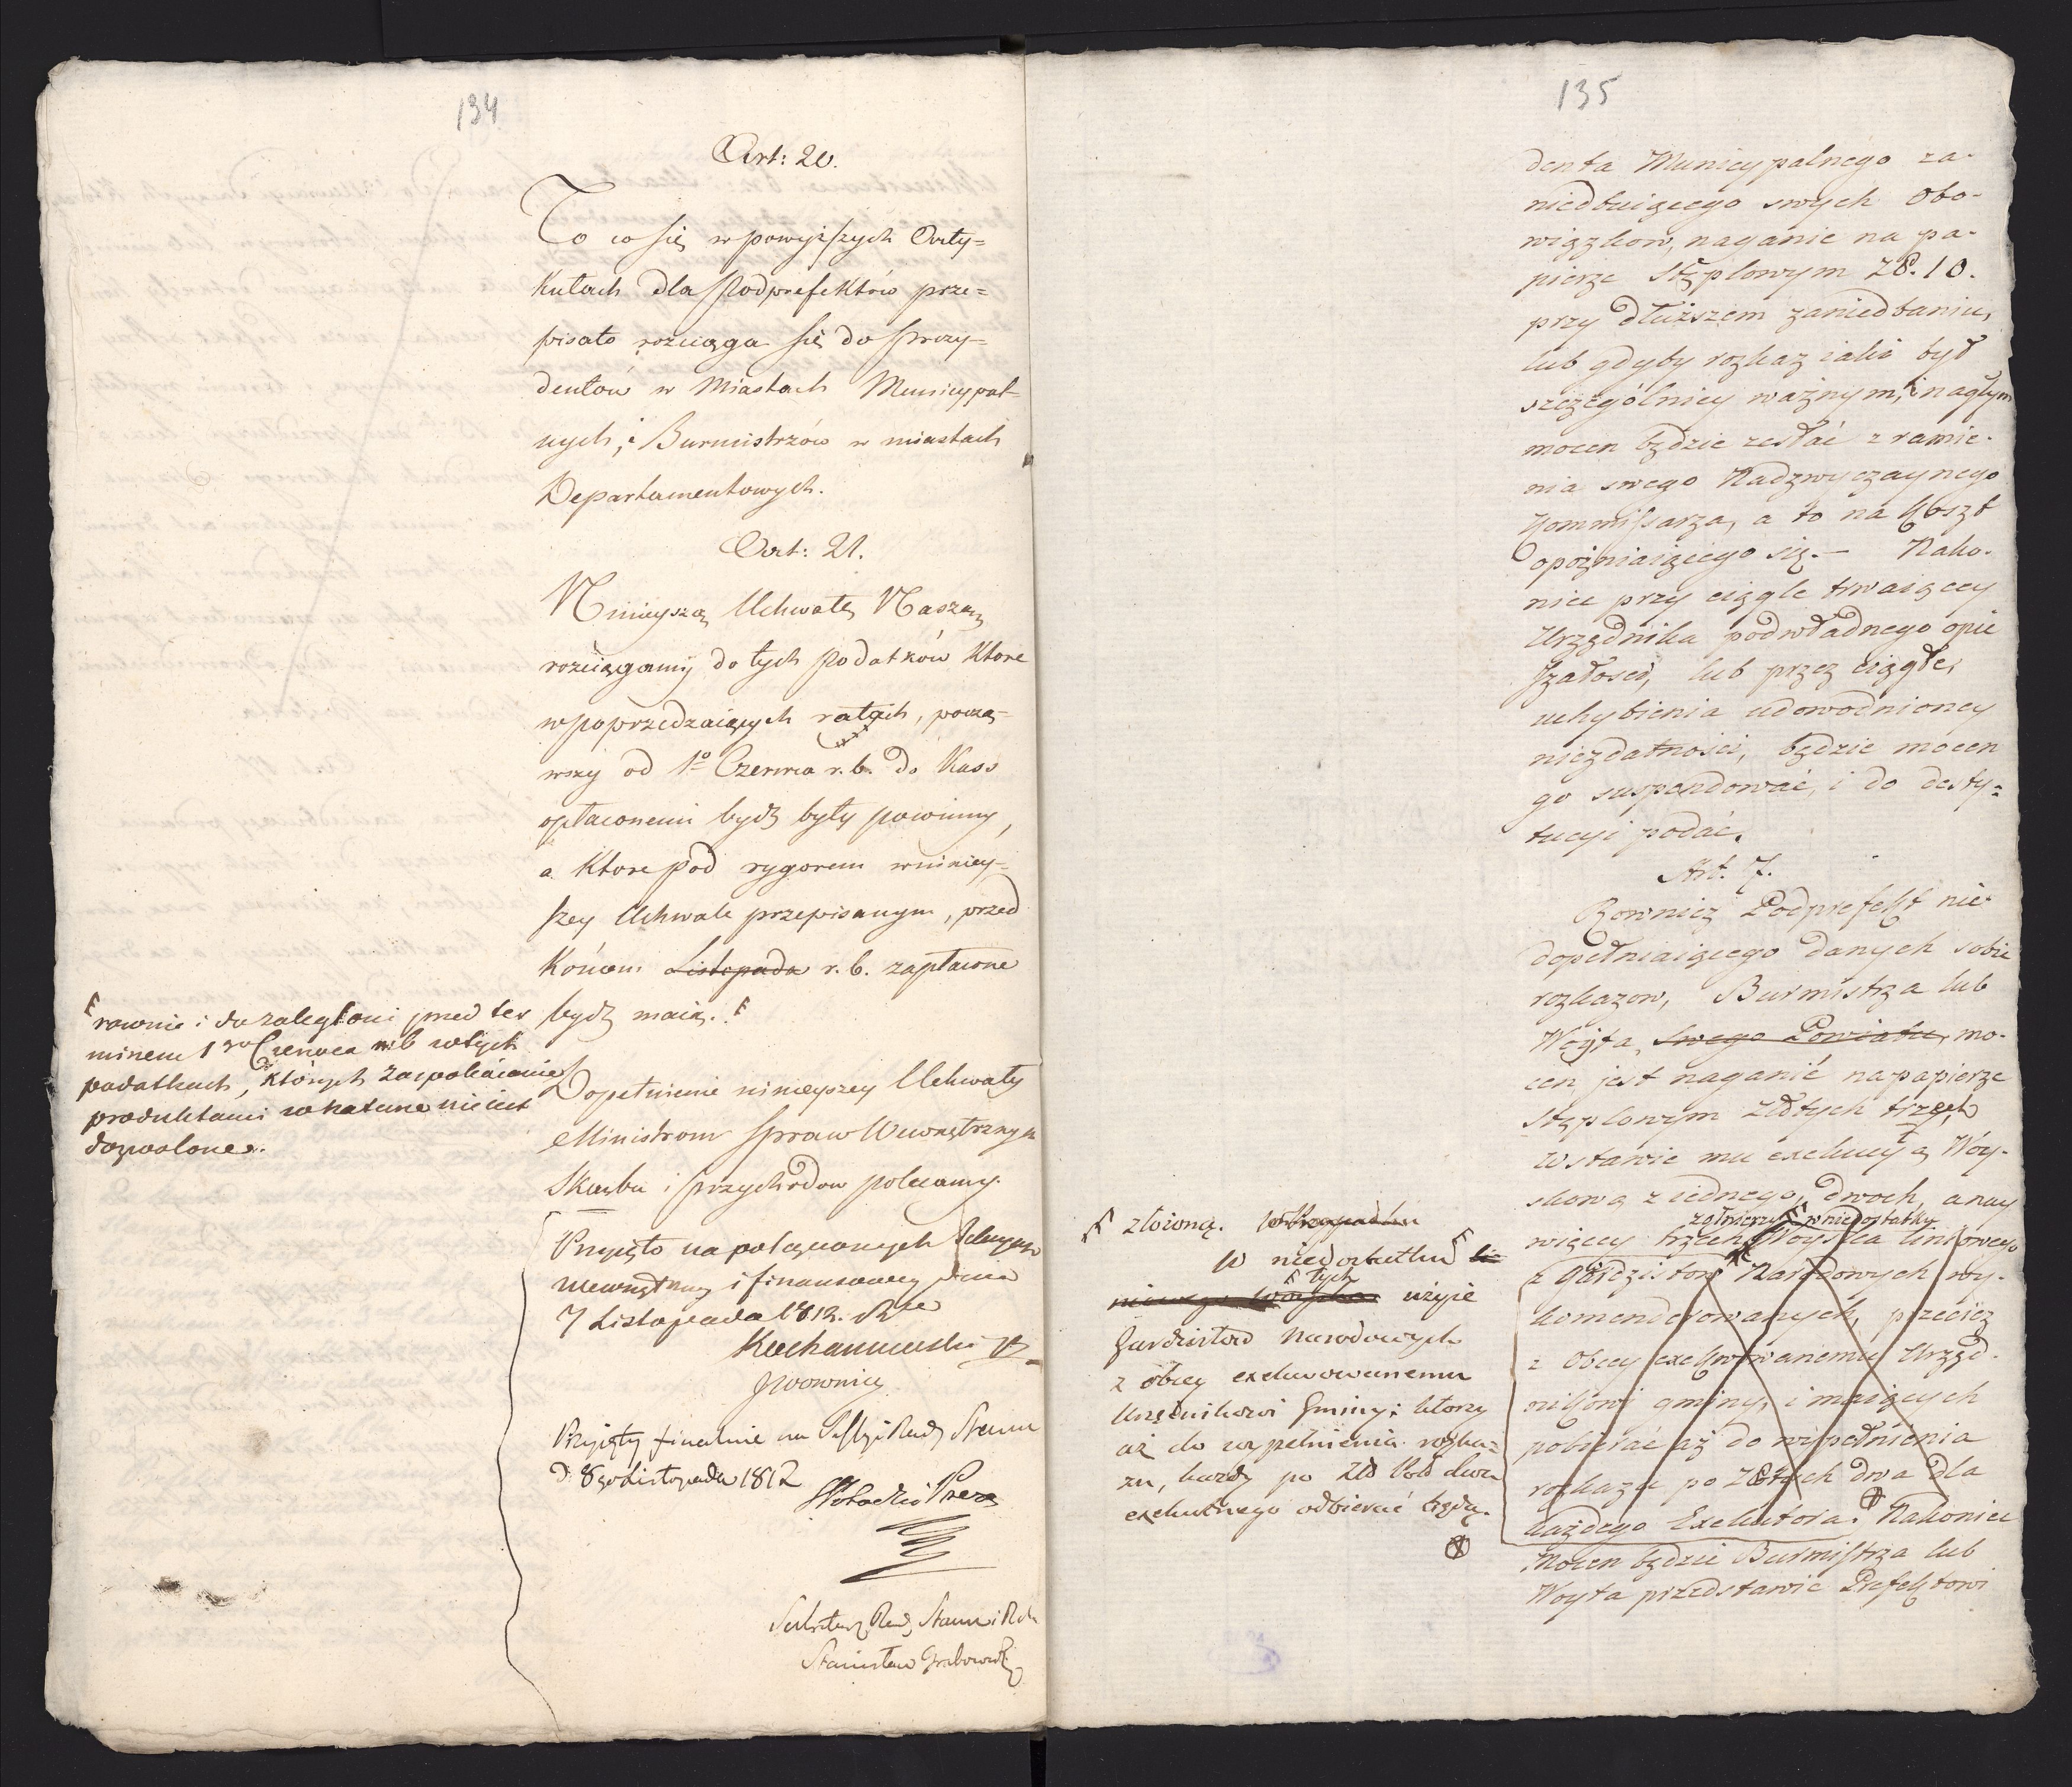 134
Art: 20.
To co się w powyiszych Arty=
kułach dla Podprefektów prze=
pisało rozciąga się do Prezy=
dentów w Miastach Municypal=
nych, i Burmistrzów w miastach
Departamentowych.
Art: 21.
Ninieyszą Uchwałę Naszą
rozciągamy do tych Podatków które
w poprzedzaiących ratach, począ=
wszy od 1o Czerwca r. b. do Kass
opłaconemi bydź były powinny,
a które pod rygorem w niniey=
szey Uchwale przepisanym, przed
Końcem Listopada r. b. zapłacone
bydź maią.
rownie i do zaległości przed ter
minem 1go Czerwca r b w tych
podatkach, których zaspokoienie
produktami w naturze nie iest
dozwolone.
Dopełnienie ninieyszey Uchwały
Ministrom Spraw Wewnętrznych
Skarbu i Przychodow polecamy.
Przyięto na połączonych Sekcyach
wewnętrzney i finansowey dnia
7 Listopada 1812. Rke
Kochanowski
Woownicy
Przyięty finalnie na Sessyi Rady Stanu
d. 8go Listopada 1812
Prezes
Sekretarz Rady Stanu i
Stanisław Grabowski
135
denta Municypalnego za-
niedbuiącego swych obo-
wiązkow, naganie na pa-
pierze Stęplowym Zł. 10.
przy dłuższem zaniedbaniu,
lub gdyby rozkaz iaki był
szczególniey ważnym, i nagłym
mocen będzie zesłać z ramie-
nia swego Nadzwyczaynego
Kommissarza, a to na koszt
opoźniaiącego się. — Nako-
niec przy ciągle trwaiącey
Urzędnika podwładnego opie
szałości, lub przez ciągłe,
uchybienia udowodnioney
niezdatności, będzie mocen
go suspendować, i do desty=
tucyi podać.
Art. 7.
Rownież Podprefekt nie
dopełniaiącego danych sobie
rozkazow, Burmistrza lub
Woyta, swego Powiatu, mo-
cen jest naganić na papierze
stęplowym złotych trzech
wstawie mu exekucyą Woy-
skową z iednego, dwoch, a nay
żołnierzy w niedostatku
więcey trzech Woyska liniowego
z gwardzistow Narodowych wy-
komenderowanych, przecież
z obcey exekwowanemu Urzęd-
nikowi gminy, i maiących
pobierać aż do wypełnienia
rozkazu po Złotych dwa dla
każdego Exekutora. Nakoniec
Mocen będzie Burmistrza lub
Woyta przedstawić Prefektowi
złożoną.
w niedostatku
tych
użyie
Gwardzistow Narodowych
z obcey exekwowanemu
Urzędnikowi Gminy; ktorzy
aż do wypełnienia rozka=
zu, każdy po Zło Pol dwa
exekucnego odbierać będą.